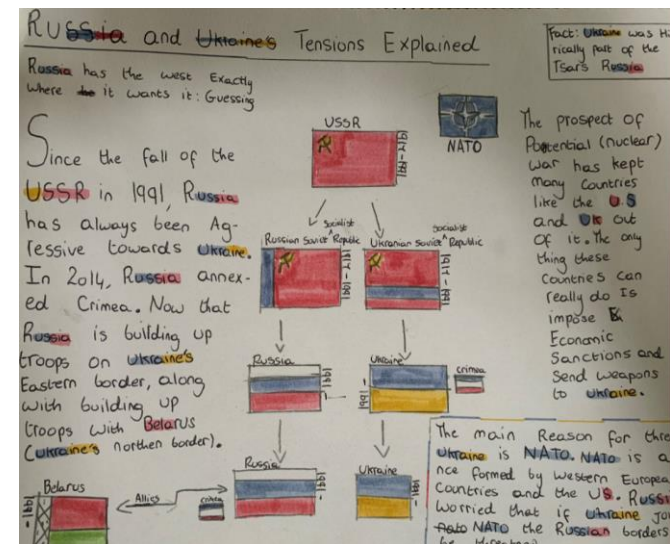 Russia and Ukraine's Tensions Explained
Fact: Ukraine was Hi
rically part of the
Tsars Russia
Russia has the west Exactly
where it wants it: Guessing
Since the fall of the
USSR in 1991, Russia
has always been Ag-
ressive towards Ukraine.
In 2014, Russia annex-
ed Crimea. Now that
Russia is building up
troops on Ukraine's
Eastern border, along
with building up
troops with Belarus
(Ukraine's northen border).
USSR
1917-1991
NATO
Russian Soviet Socialist Republic
1917-1991
Ukranian Soviet Socialist Republic
1917-1991
Russia
1991-
Ukraine
1991-
Crimea
Russia
1991-
Crimea
Ukraine
1991-
Belarus
1991-
Allies
The prospect of
Potential (nuclear)
war has kept
many Countries
like the U.S
and UK out
of it. The only
thing these
Countries can
really do Is
impose
Economic
Sanctions and
Send weapons
to Ukraine.
The main Reason for thre
Ukraine is NATO. NATO is a
nce formed by Western Europea
Countries and the US. Russi
Worried that if Ukraine joi
NATO the Russian borders